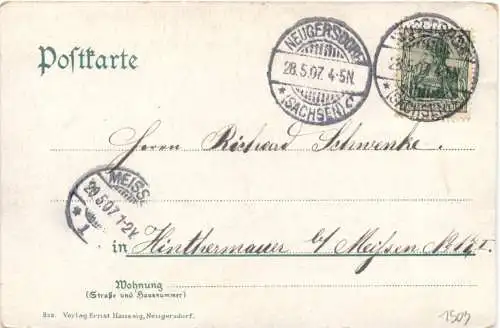 Postkarte
NEUGERSDORF
28.5.07. 4-5N.
* (SACHSEN)
28.5
* (SACHSEN)
Herrn Richard Schwenke
MEISS
29.5.07. 1-2V.
* 1
in Hinthermauer b/ Meißen
Wohnung
(Straße und Hausnummer)
Verlag Ernst Neugersdorf.
1504